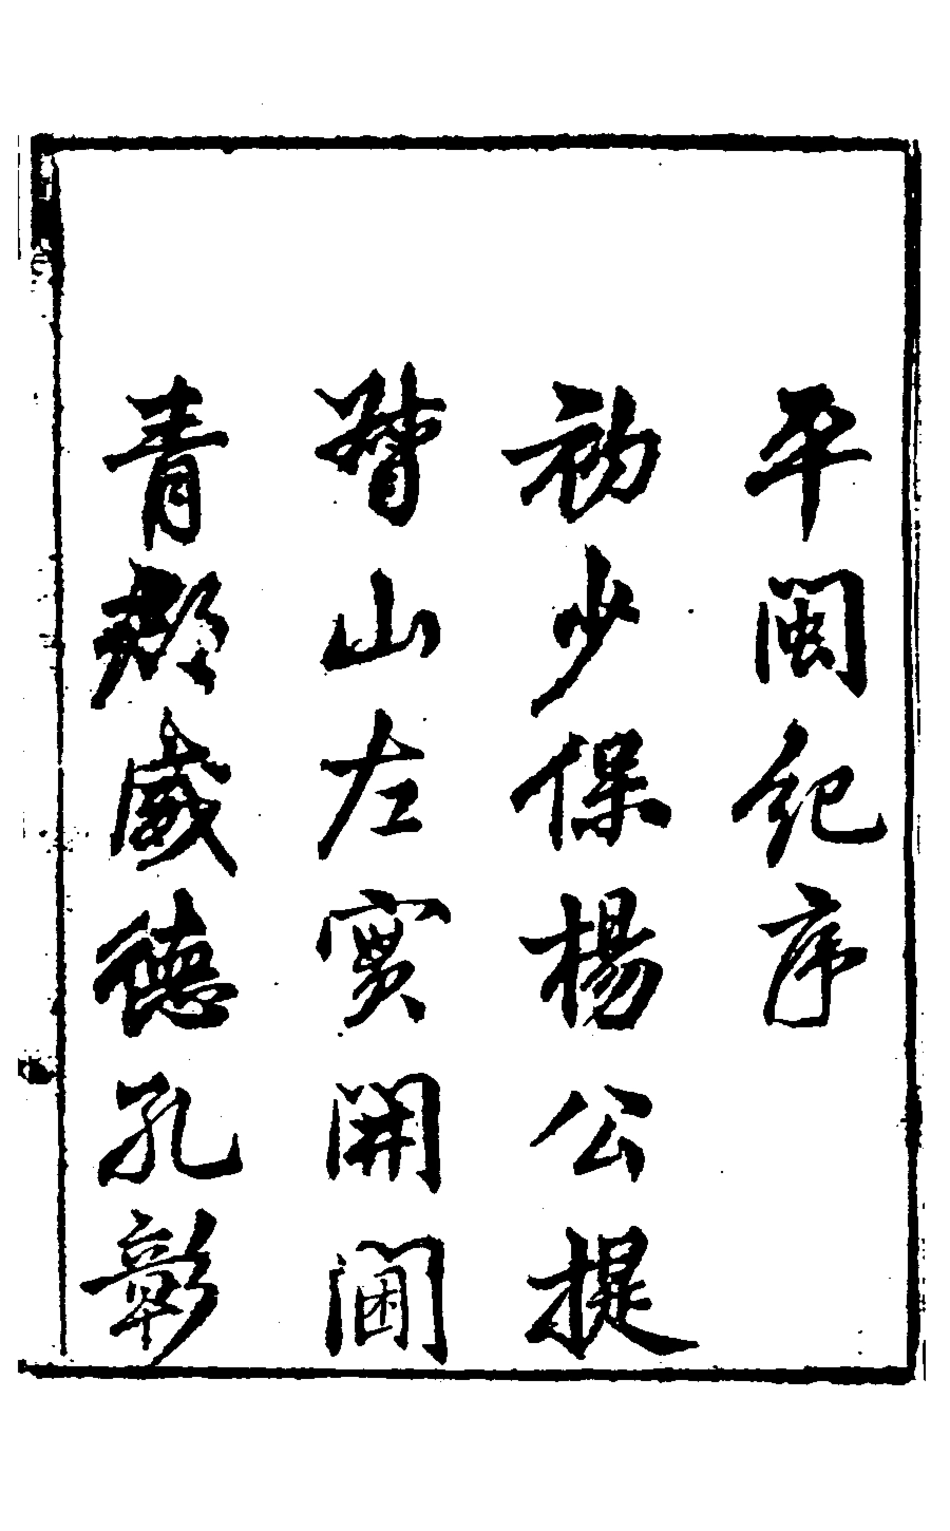 平閩紀序
初少保楊公提
督山左實開閫
青郡威德孔彰